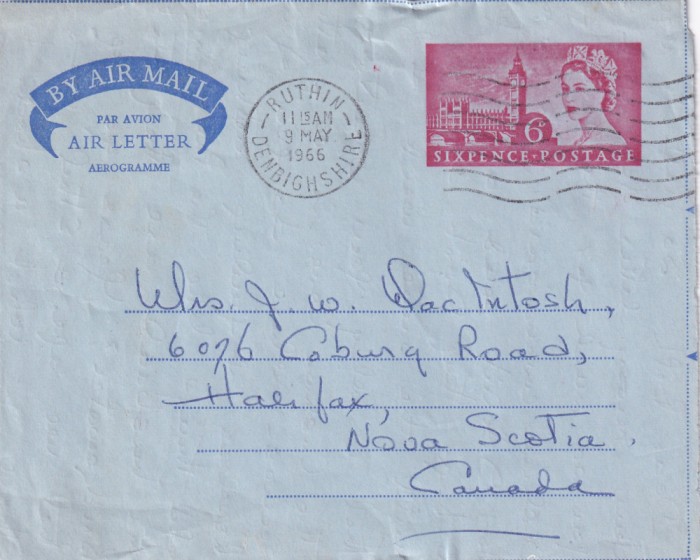 BY AIR MAIL
PAR AVION
AIR LETTER
AEROGRAMME
RUTHIN
11 15 AM
9 MAY
1966
DENBIGHSHIRE
6D
SIXPENCE · POSTAGE
Mrs. J. W. MacIntosh,
6076 Coburg Road,
Halifax,
Nova Scotia.
Canada